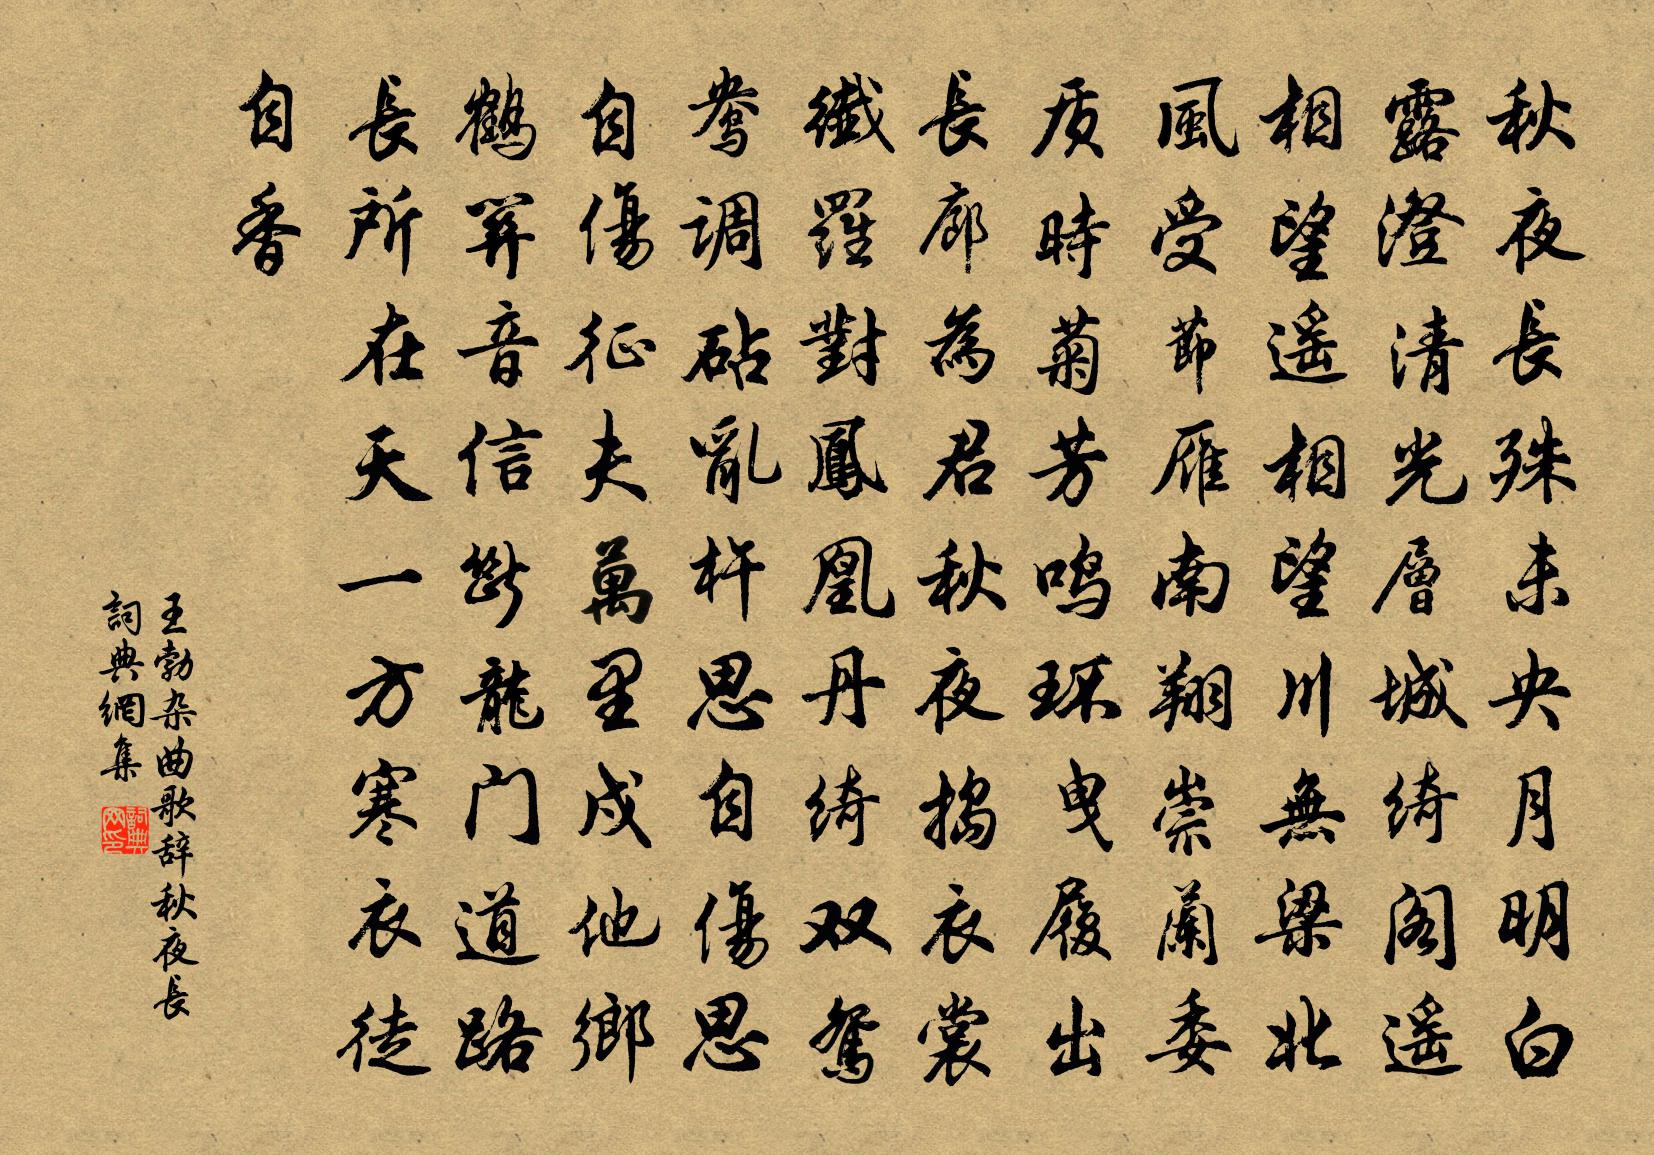 秋夜長殊未央月明白
露澄清光層城綺閣遥
相望遥相望川無梁北
風受節雁南翔崇蘭委
质時菊芳鸣环曳履出
長廊為君秋夜搗衣裳
纖羅對鳳凰丹綺双鴛
鸯調砧亂杵思自傷思
自傷征夫萬里戍他鄉
鶴関音信斷龍门道路
長所在天一方寒衣徒
自香
王勃杂曲歌辞秋夜長
詞典網集
詞典网印